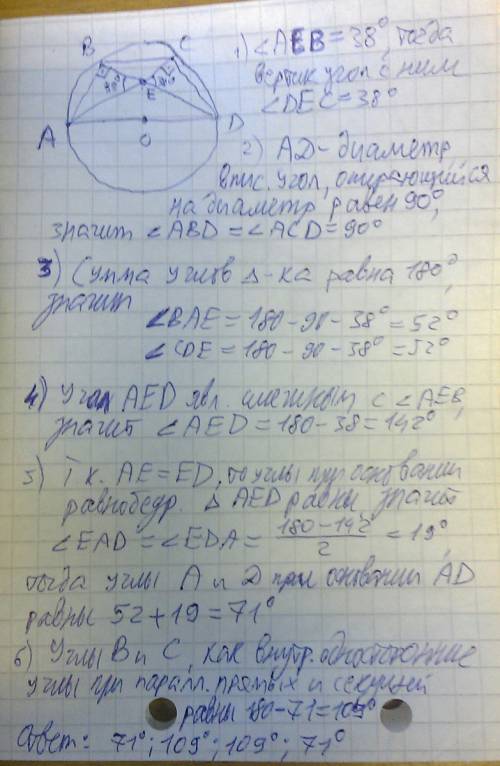 B C
38° 38°
E
A D
O
1) ∠AEB = 38°, тогда
вертик угол с ним
∠DEC = 38°
2) AD - диаметр
впис. угол, опирающийся
на диаметр равен 90°,
значит ∠ABD = ∠ACD = 90°
3) Сумма углов Δ-ка равна 180°,
значит
∠BAE = 180 - 90 - 38° = 52°
∠CDE = 180 - 90 - 38° = 52°
4) Угол AED явл. смежным с ∠AEB,
значит ∠AED = 180 - 38 = 142°
5) Т к. AE = ED, то углы при основании
равнобедр. Δ AED равны, значит
∠EAD = ∠EDA = (180 - 142)/2 = 19°
тогда углы A и D при основании AD
равны 52 + 19 = 71°
6) Углы B и C, как внутр. односторонние
углы при паралл. прямых и секущей
равны 180 - 71 = 109°
Ответ: 71°; 109°; 109°; 71°